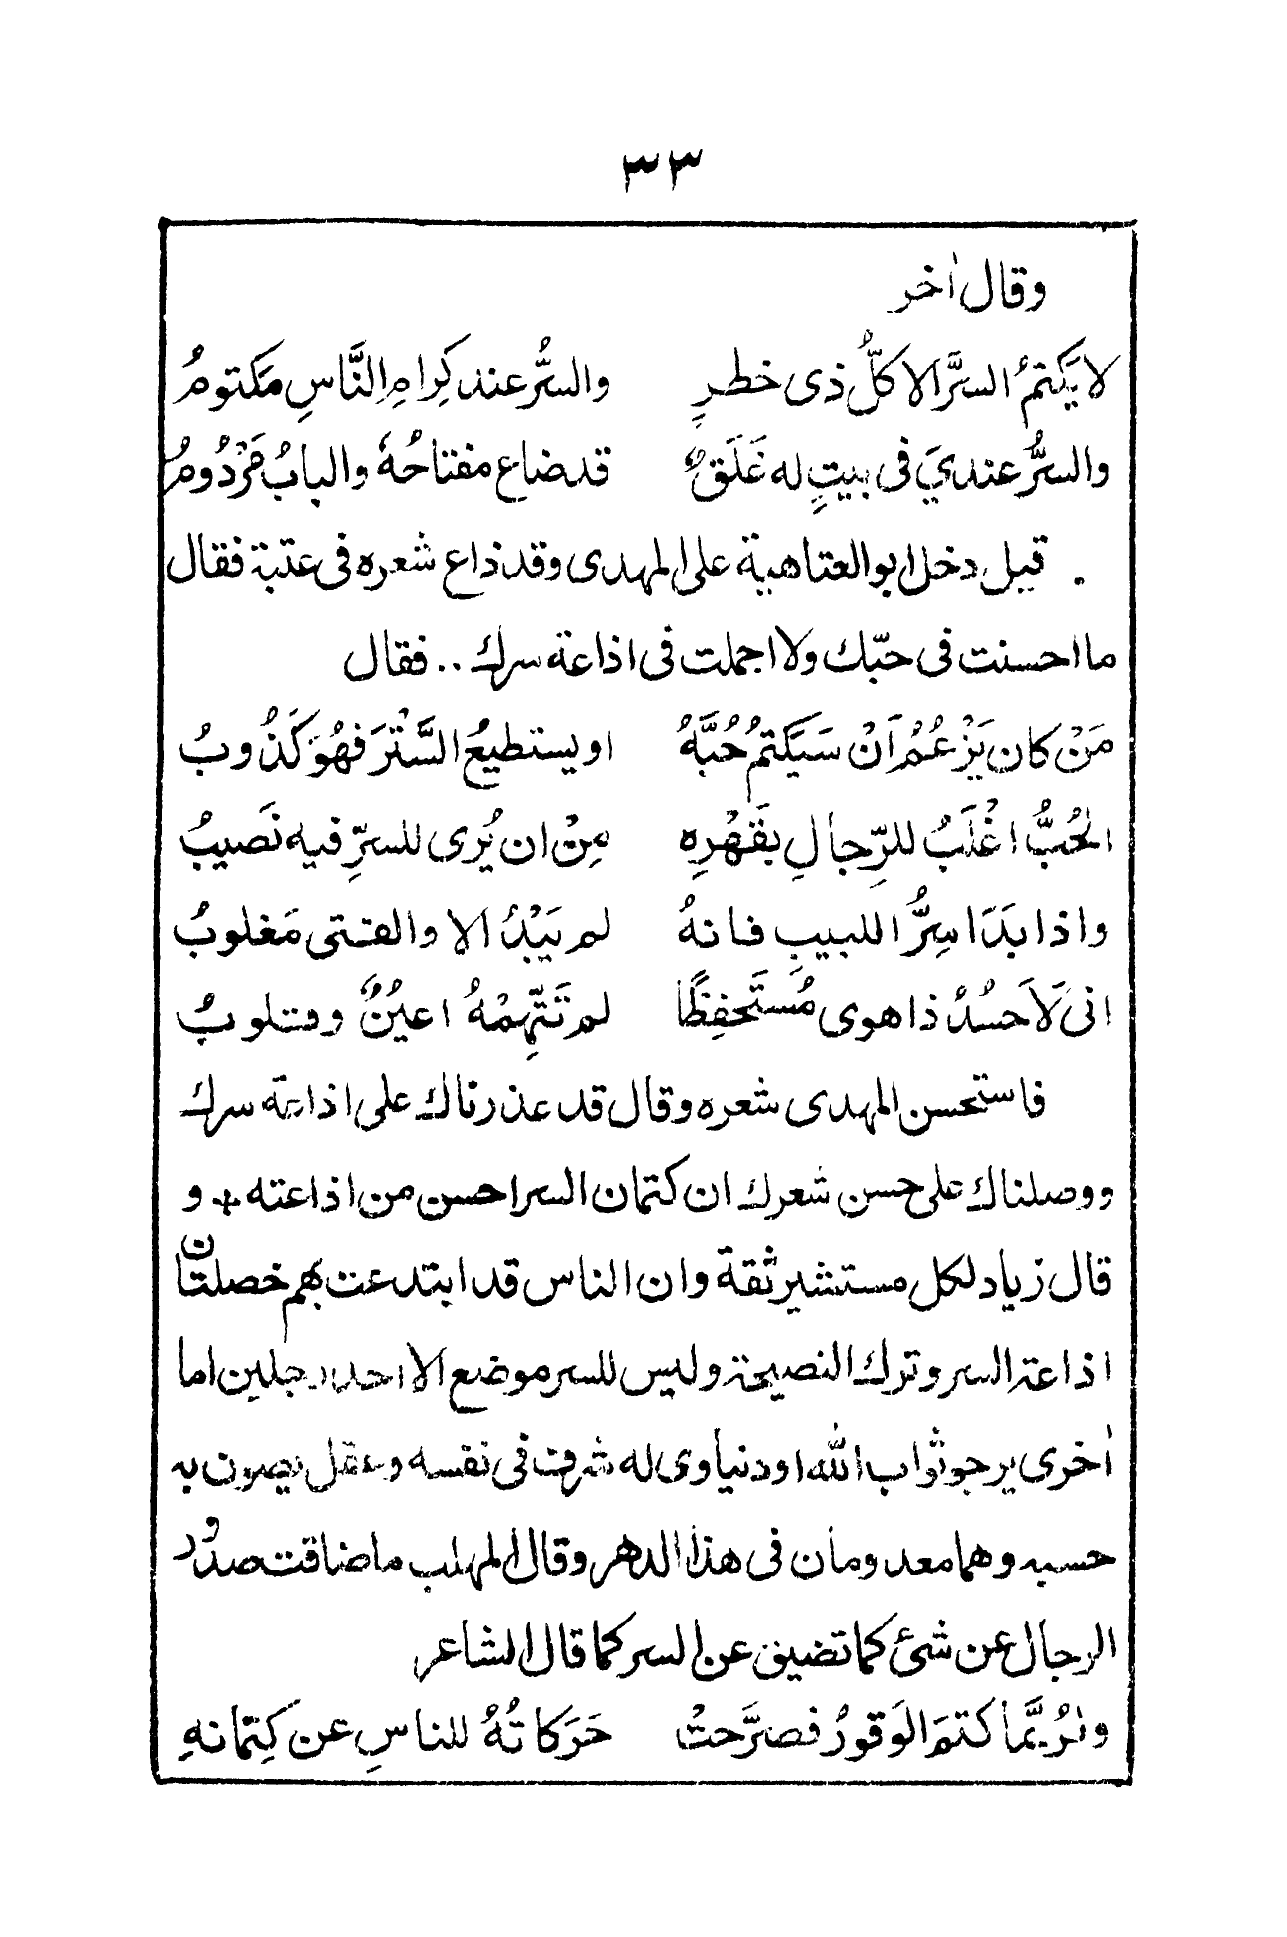 ٣٣
وقال اٰخر
لا يَكتمُ السرَّ الا كلُّ ذى خطرٍ والسرُّ عند كِرامِ النَّاسِ مَكتومُ
والسرُّ عنديَ فى بيتٍ له غَلَقٌ قد ضاع مفتاحُهٗ والبابُ مَرْدُومُ
. قيل دخل ابو العتاهية على المهدى وقد ذاع شعره فى عتبة فقال
ما احسنت فى حبّك ولا اجملت فى اذاعة سرك .. فقال
مَنْ كان يَزْعُمُ اَنْ سَيَكتمُ حُبَّهُ او يستطيعُ السَّتْرَ فهُوَ كَذُوبُ
الحُبُّ اغْلَبُ للرِّجالِ بقَهْرِه مِنْ ان يُرى للسرِّ فيه نَصيبُ
واذا بَدَا سِرُّ اللبيبِ فانهُ لم يَبْدُ الا والفتى مَغلوبُ
انى لَاَحسُدُ ذا هوى مُستَحفِظًا لم تَتَّهِمْهُ اعيُنٌ وقتلوبُ
فاستحسن المهدى شعره وقال قد عذرناك على اذاعة سرك
ووصلناك على حسن شعرك ان كتمان السر احسن من اذاعته + و
قال زياد لكل مستشير ثقة وان الناس قد ابتدعت بهم خصلتان
اذاعة السر وترك النصيحة وليس للسر موضع الا احد رجلين اما
اٰخرى يرجو ثواب الله او دنياوى له شرف فى نفسه وعقل يصون به
حسبه وهما معدومان فى هذا الدهر وقال المهلب ما ضاقت صدور
الرجال عن شئ كما تضيق عن السر كما قال الشاعر
ولرُبَّما كتمَ الوَقورُ فصرَّحتْ حَرَكاتُهُ للناسِ عن كِتمانهِ